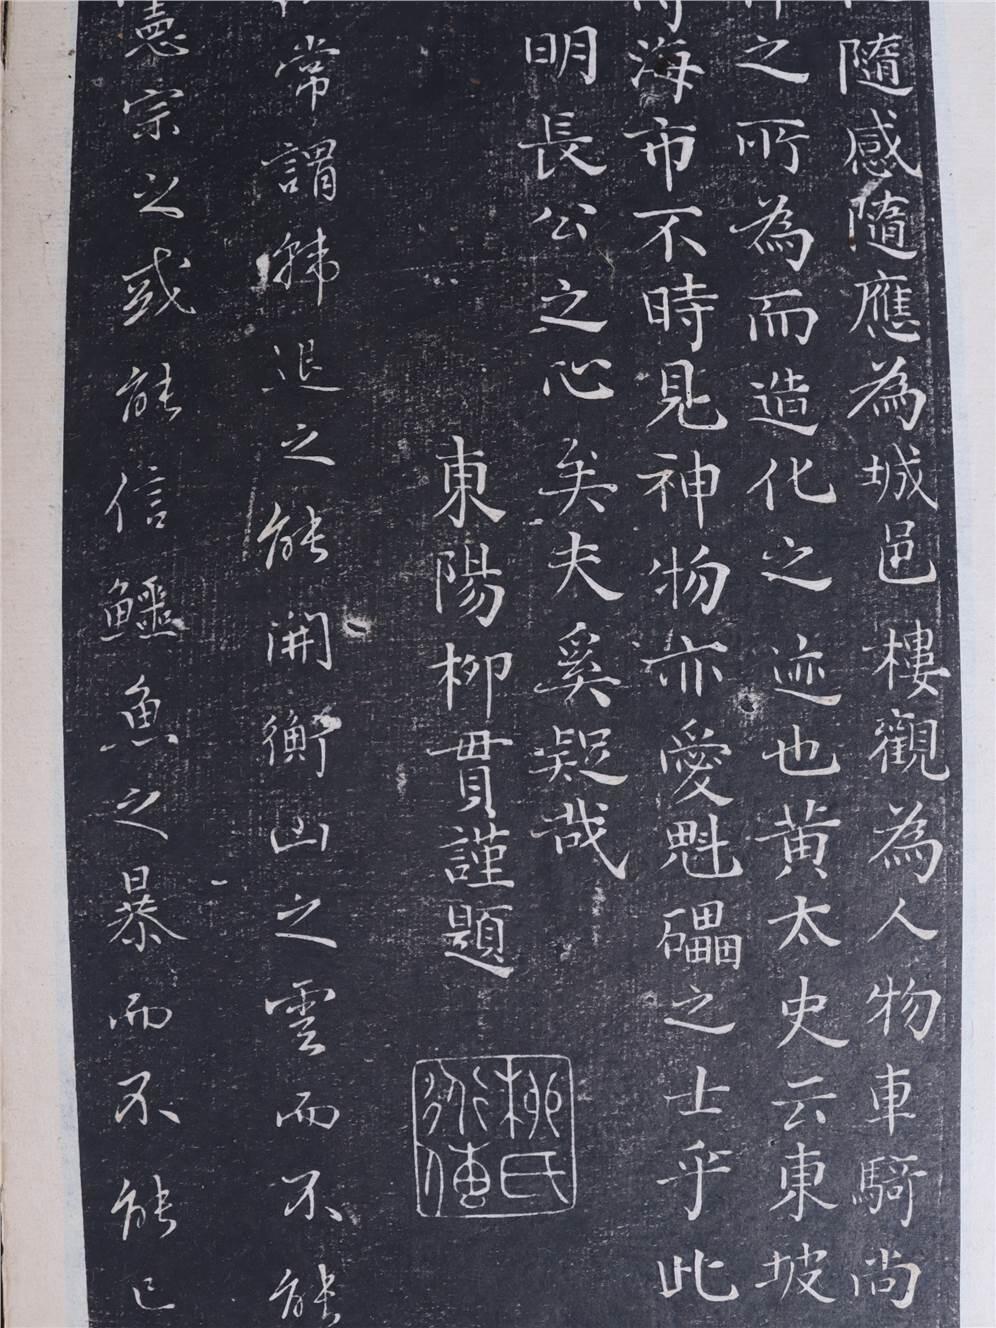 隨感隨應為城邑樓觀為人物車騎尚
之所為而造化之迹也黃太史云東坡
海市不時見神物亦愛魁礧之士乎此
明長公之心矣夫奚疑哉
東陽柳貫謹題
柳氏
常謂韩退之能開衡山之雲而不能
憲宗之或能信鱷魚之暴而不能已